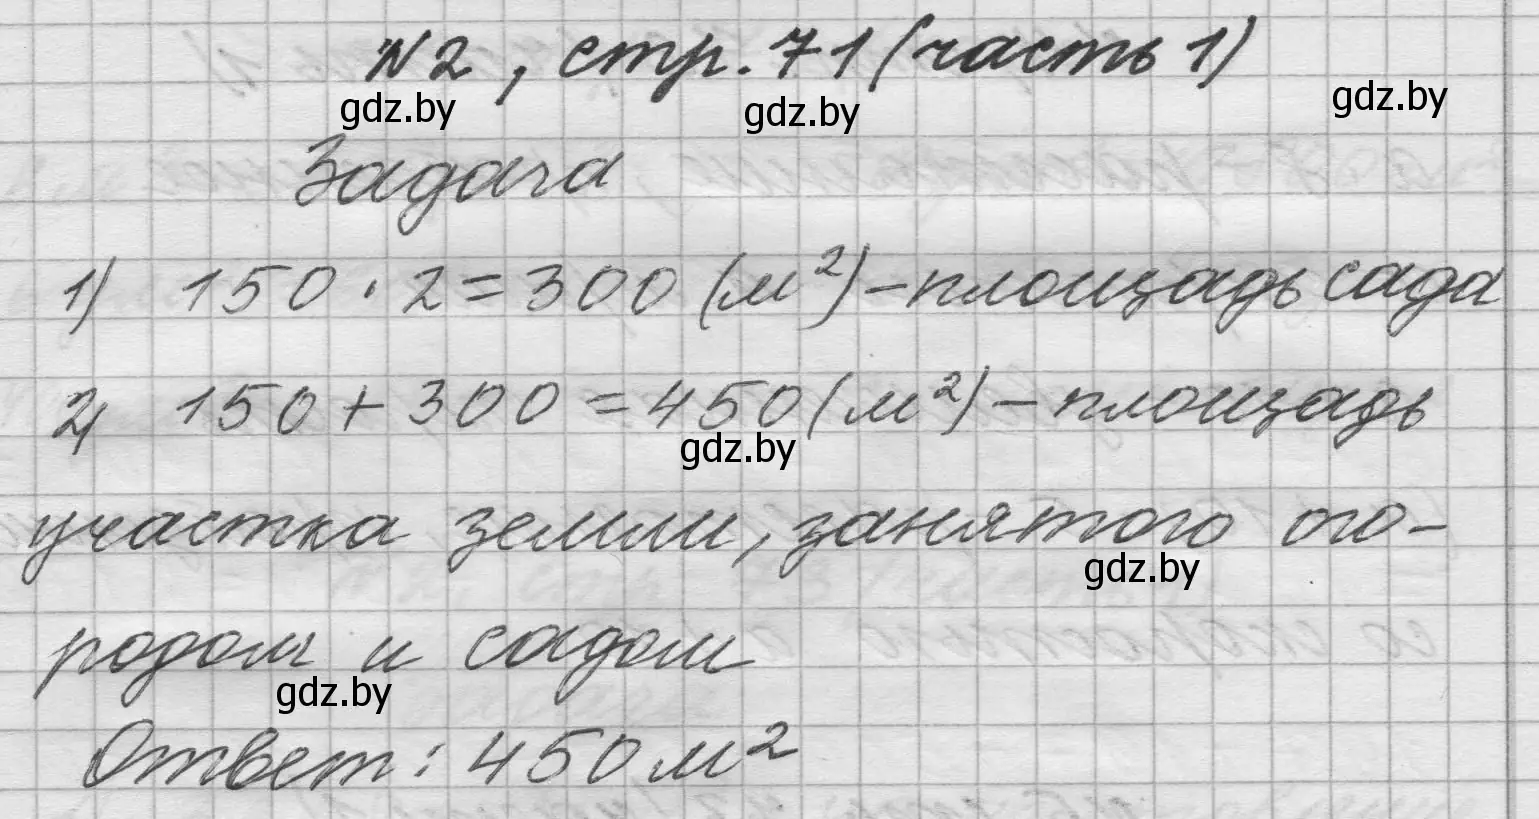 №2, стр. 71 (часть 1)
gdz.by gdz.by gdz.by
Задача
1) 150 · 2 = 300 (м²) – площадь сада
2) 150 + 300 = 450 (м²) – площадь
gdz.by
участка земли, занятого ого-
gdz.by
родом и садом
gdz.by
Ответ: 450 м²